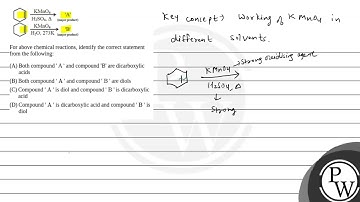 KMnO₄
H₂SO₄, Δ
'A'
(major product)
KMnO₄
H₂O, 273 K
'B'
(major product)
For above chemical reactions, identify the correct statement
from the following:
(A) Both compound ' A ' and compound 'B' are dicarboxylic
acids
(B) Both compound ' A ' and compound ' B ' are diols
(C) Compound ' A ' is diol and compound ' B ' is dicarboxylic
acid
(D) Compound ' A ' is dicarboxylic acid and compound ' B ' is
diol
Key concept) Working of KMnO4 in
different solvents.
KMnO4 → Strong oxidising agent
H2SO4, Δ
↓
Strong
PW